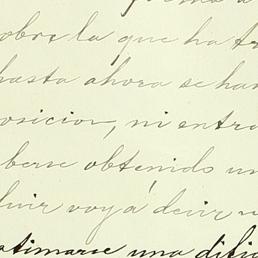 sobre la que ha tr
hasta ahora se han
osicion, ni entra
berse obtenido un
luir voy á decir u
atimarse una difi